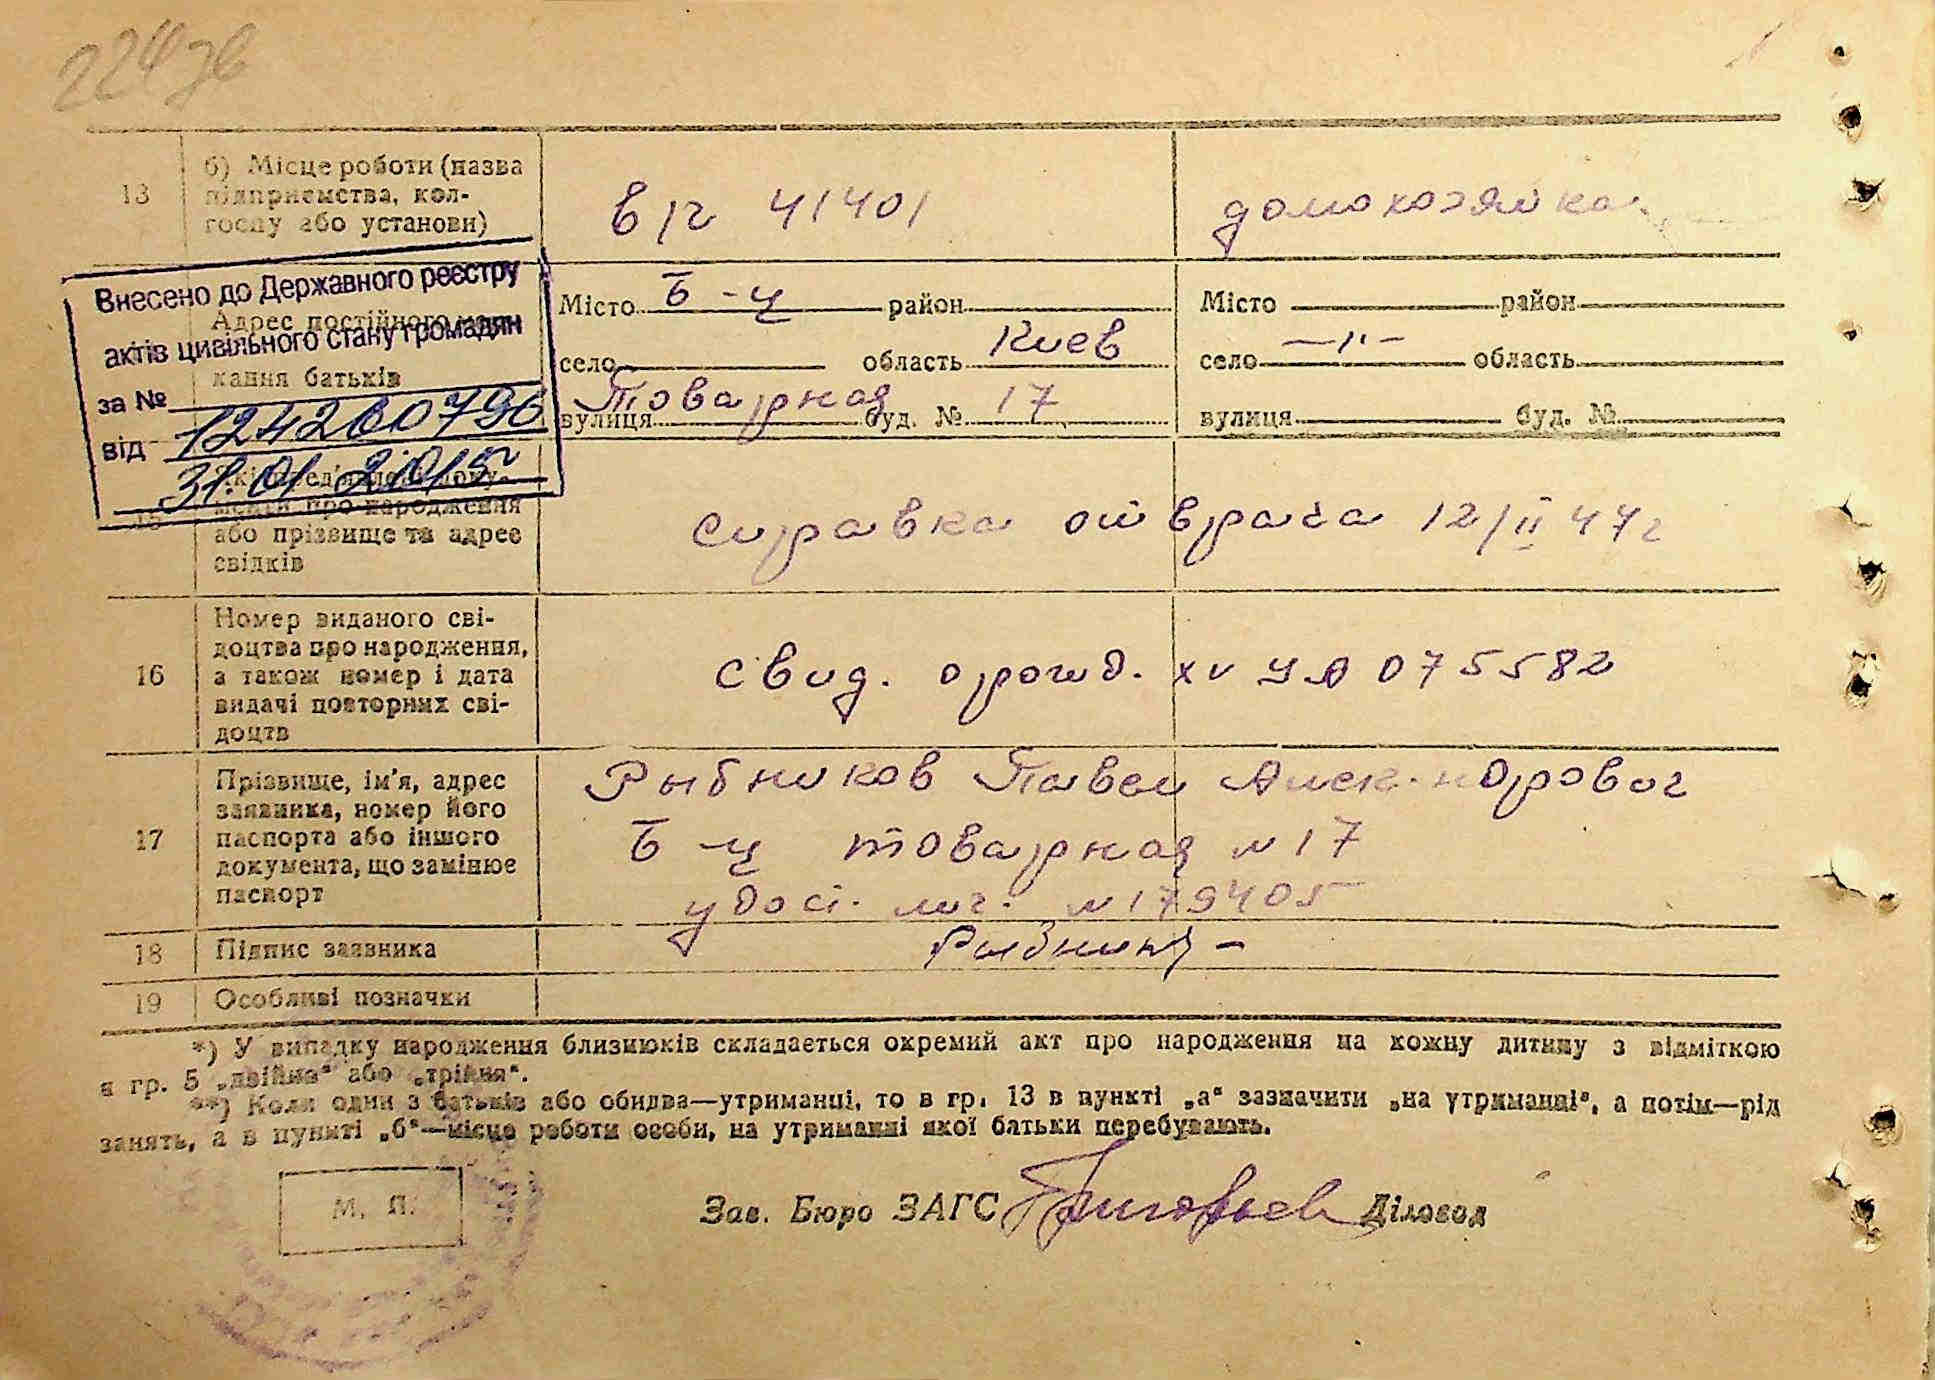 224
13
б) Місце роботи (назва
підприємства, кол-
госпу або установи)
в/ч 41401
домохозяйка
Внесено до Державного реєстру
актів цивільного стану громадян
за №
124260796
від
31.01.2015
Адрес постійного
кання батьків
Місто Б-Ц район
село область Киев
вулиця Товарная буд. № 17
Місто район
село —"— область
вулиця буд. №
15
менти про народження
або прізвище та адрес
свідків
справка от врача 12/II 47г
16
Номер виданого сві-
доцтва про народження,
а також номер і дата
видачі повторних сві-
доцтв
Свид. о рожд. XV УА 075582
17
Прізвище, ім'я, адрес
заявника, номер його
паспорта або іншого
документа, що замінює
паспорт
Рыбников Павел
Б-Ц товарная N 17
удост. лич. N 179405
18
Підпис заявника
19
Особливі позначки
*) У випадку народження близнюків складається окремий акт про народження на кожну дитину з відміткою
в гр. 5 „двійня" або „трійня".
**) Коли один з батьків або обидва—утриманці, то в гр. 13 в пункті „а" зазначити „на утриманні", а потім—рід
занять, а в пункті „б"—місце роботи особи, на утриманні якої батьки перебувають.
М. П.
Зав. Бюро ЗАГС Григорьев Діловод